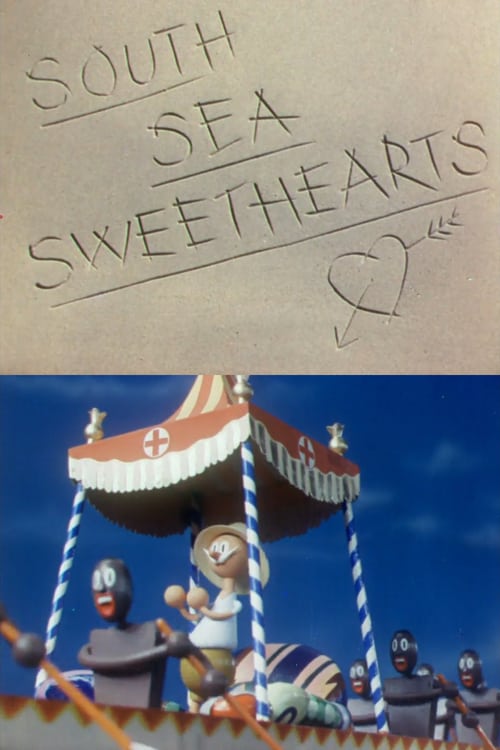 SOUTH
SEA
SWEETHEARTS